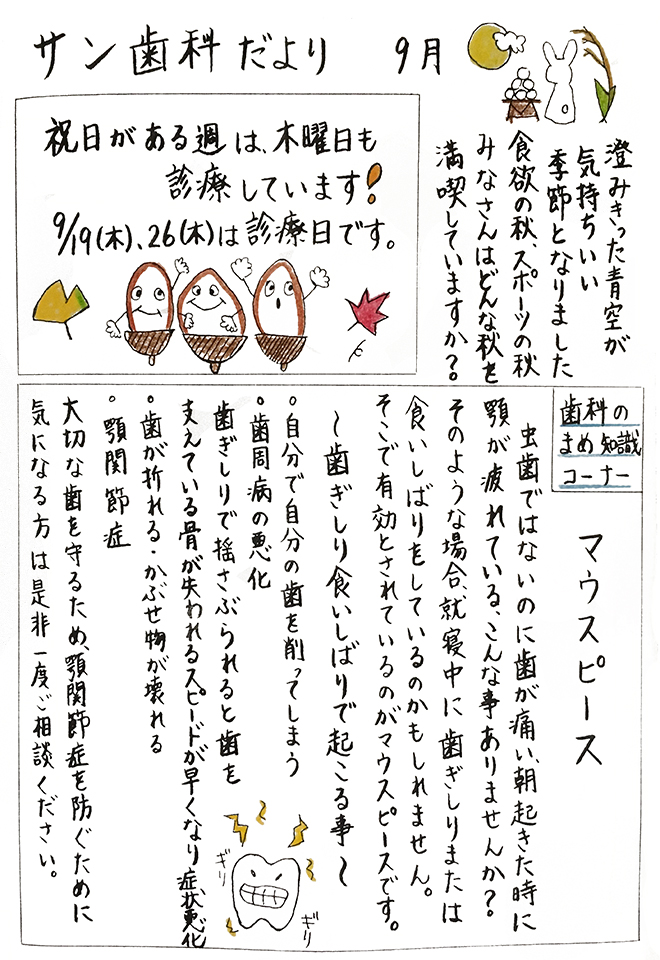 サン歯科だより 9月
澄みきった青空が
気持ちいい
季節となりました
食欲の秋、スポーツの秋
みなさんはどんな秋を
満喫していますか?。
祝日がある週は、木曜日も
診療しています!
9/19(木)、26(木)は診療日です。
歯科の
まめ知識
コーナー
マウスピース
虫歯ではないのに歯が痛い、朝起きた時に
顎が疲れている、こんな事ありませんか?
そのような場合、就寝中に歯ぎしりまたは
食いしばりをしているのかもしれません。
そこで有効とされているのがマウスピースです。
〜歯ぎしり食いしばりで起こる事〜
。自分で自分の歯を削ってしまう
。歯周病の悪化
歯ぎしりで揺さぶられると歯を
支えている骨が失われるスピードが早くなり症状悪化
。歯が折れる・かぶせ物が壊れる
。顎関節症
大切な歯を守るため、顎関節症を防ぐために
気になる方は是非一度ご相談ください。
ギリ
ギリ